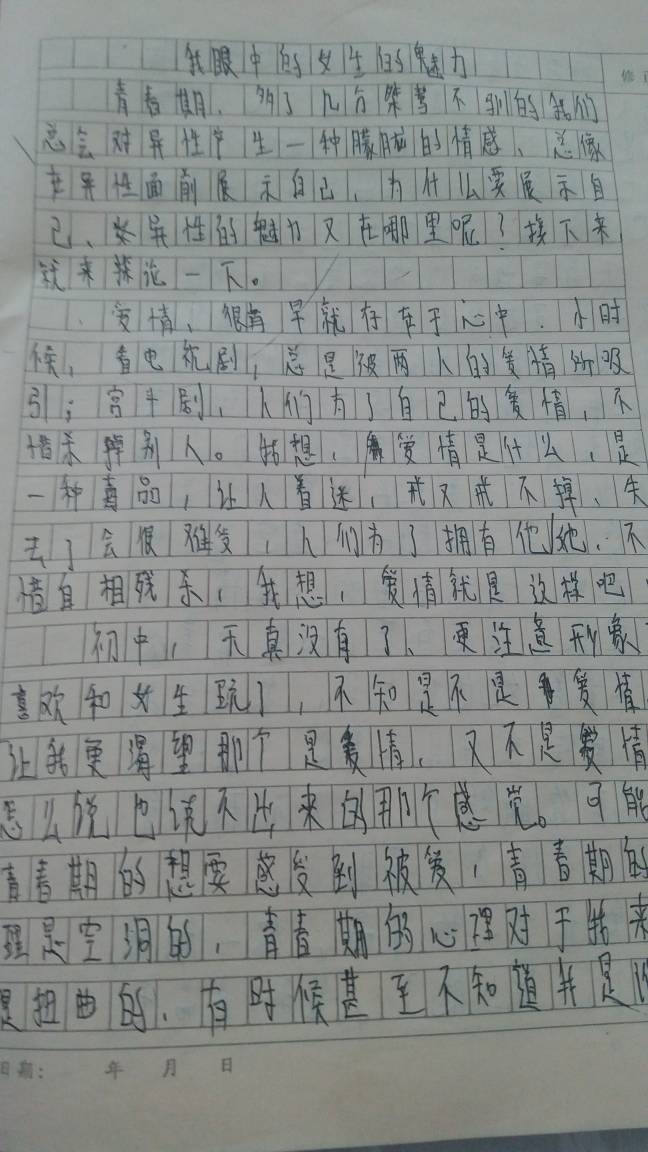 我眼中的女生的魅力
青春期,多了几分桀骜不驯的我们
总会对异性产生一种朦胧的情感、总像
在异性面前展示自己,为什么要展示自
己、异性的魅力又在哪里呢?接下来
就来探论一下。
爱情、很早就存在于心中.小时
候,看电视剧,总是被两人的爱情所吸
引;宫斗剧,人们为了自己的爱情,不
惜杀掉别人。我想,爱情是什么,是
一种毒品,让人着迷,戒又戒不掉、失
去了会很难受,人们为了拥有他/她.不
惜自相残杀,我想,爱情就是这样吧
初中,天真没有了、更注意形象
喜欢和女生玩了,不知是不是爱情
让我更渴望那个是爱情,又不是爱情
怎么说也说不出来的那个感觉。可能
青春期的想要感受到被爱,青春期的
理是空洞的,青春期的心理对于我来
是扭曲的.有时候甚至不知道我是
日期: 年 月 日